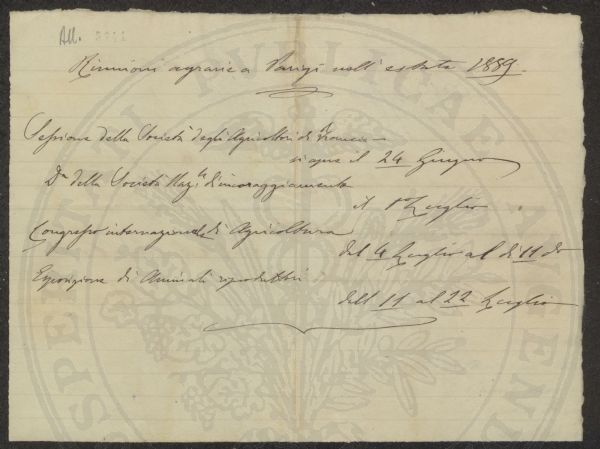 All.
Riunioni agrarie a Parigi nell' estate 1889.
Sessione della Società degli Agricoltori di Francia
si apre il 24 Giugno
Dª della Società Naz.le d'incoraggiamento
il 1º Luglio
Congresso internazionale di Agricoltura
dal 4 Luglio al dì 11 do
Esposizione di Animali riproduttori
dall' 11 al 22 Luglio